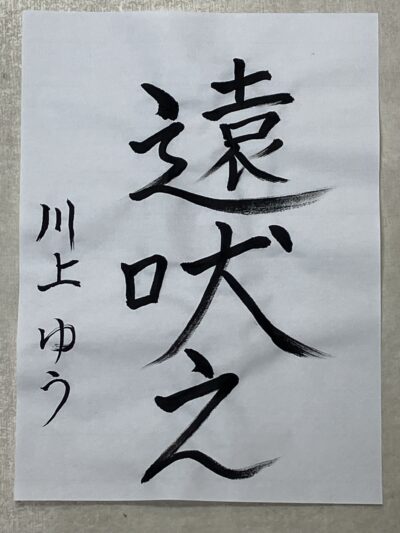 遠吠え
川上ゆう